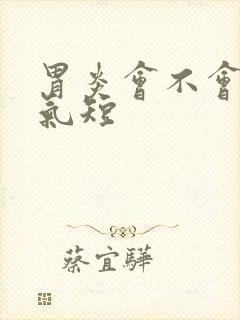 胃炎會不會
氣短
蔡宜驊